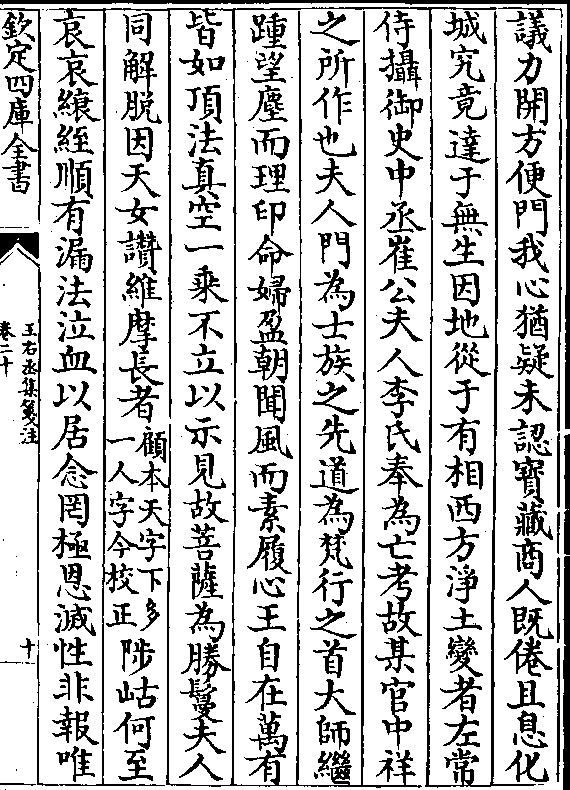 議力開方便門我心猶疑未認寶藏商人既倦且息化
城究竟達于無生因地從于有相西方淨土變者左常
侍攝御史中丞崔公夫人李氏奉為亡考故某官中祥
之所作也夫人門為士族之先道為梵行之首大師繼
踵望塵而理印命婦盈朝聞風而素履心王自在萬有
皆如頂法真空一乘不立以示見故菩薩為勝鬘夫人
同解脱因天女讚維摩長者顧本天字下多一人字今校正陟岵何至
哀哀縗絰順有漏法泣血以居念罔極恩滅性非報唯
欽定四庫全書
王右丞集箋注
卷二十
十